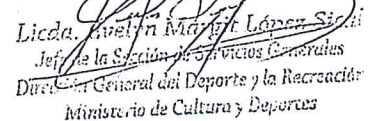 Licda. Evelyn Maryit López
Jefe de la Sección de Servicios Generales
Dirección General del Deporte y la Recreación
Ministerio de Cultura y Deportes